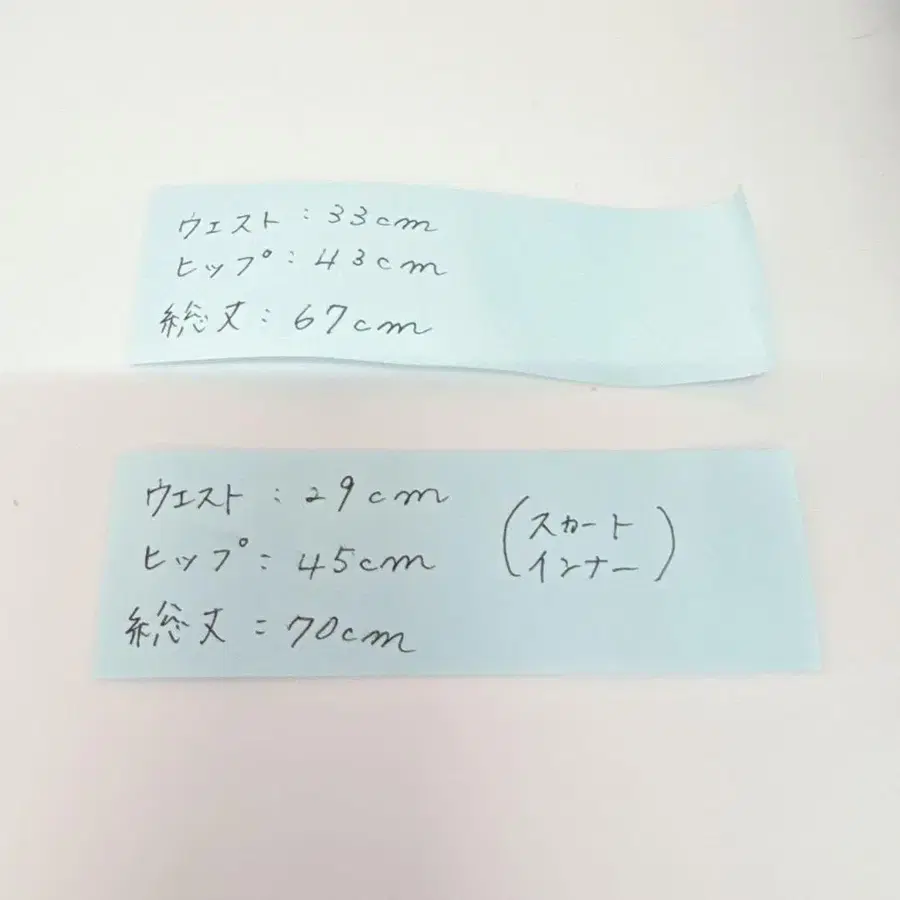 ウェスト:33cm
ヒップ:43cm
総丈:67cm
ウエスト:29cm
ヒップ:45cm
総丈:70cm
(スカート
インナー)